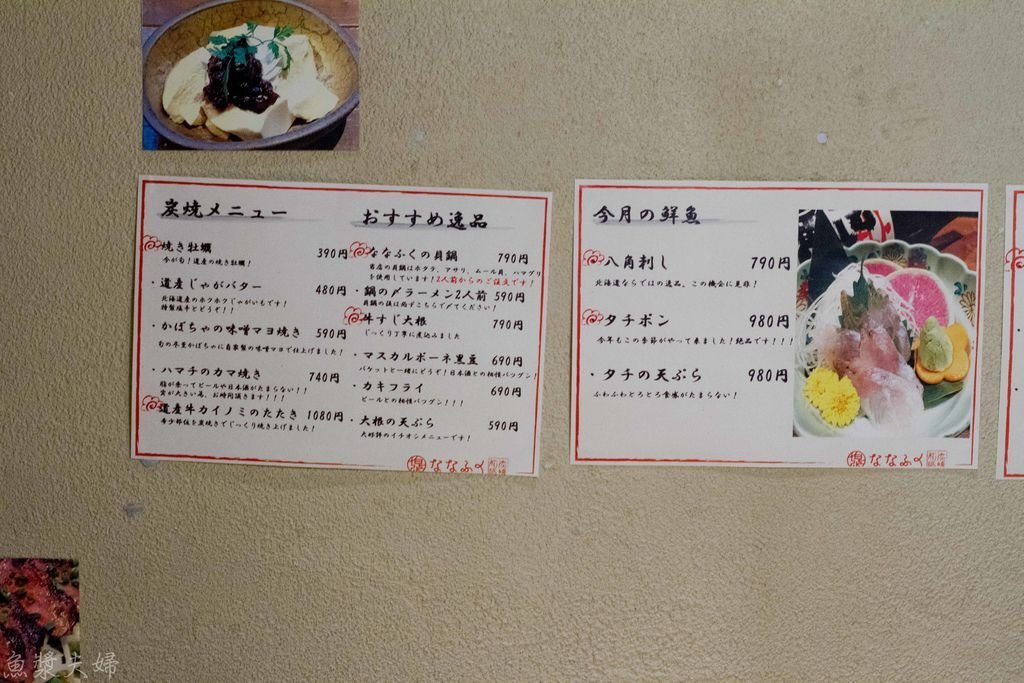 炭焼メニュー
焼き牡蠣 390円
今が旬！道産の焼き牡蠣！
・道産じゃがバター 480円
北海道産のホクホクじゃがいもです！
特製塩辛とどうぞ！！
・かぼちゃの味噌マヨ焼き 590円
旬の冬至かぼちゃに自家製の味噌マヨで仕上げました！
・ハマチのカマ焼き 740円
脂が乗ってビールや日本酒がたまらない！！
身が大きい為、お時間頂きます！！！
道産牛カイノミのたたき 1080円
希少部位を炭焼きでじっくり焼き上げました！
おすすめ逸品
ななふくの貝鍋 790円
当店の貝鍋はホタテ、アサリ、ムール貝、ハマグリ
を使用しています！2人前からのご注文です！
・鍋の〆ラーメン2人前 590円
貝鍋の後は必ずこちらで〆てください！
牛すじ大根 790円
じっくり丁寧に煮込みました
・マスカルポーネ黒豆 690円
バケットと一緒にどうぞ！日本酒との相性バツグン！
・カキフライ 690円
ビールとの相性バツグン！！！
・大根の天ぷら 590円
大将のイチオシメニューです！
ななふく
今月の鮮魚
八角刺し 790円
北海道ならではの逸品。この機会に是非！
タチポン 980円
今年もこの季節がやって来ました！絶品です！！！
・タチの天ぷら 980円
ふわふわとろとろ食感がたまらない！
ななふく
魚漿夫婦